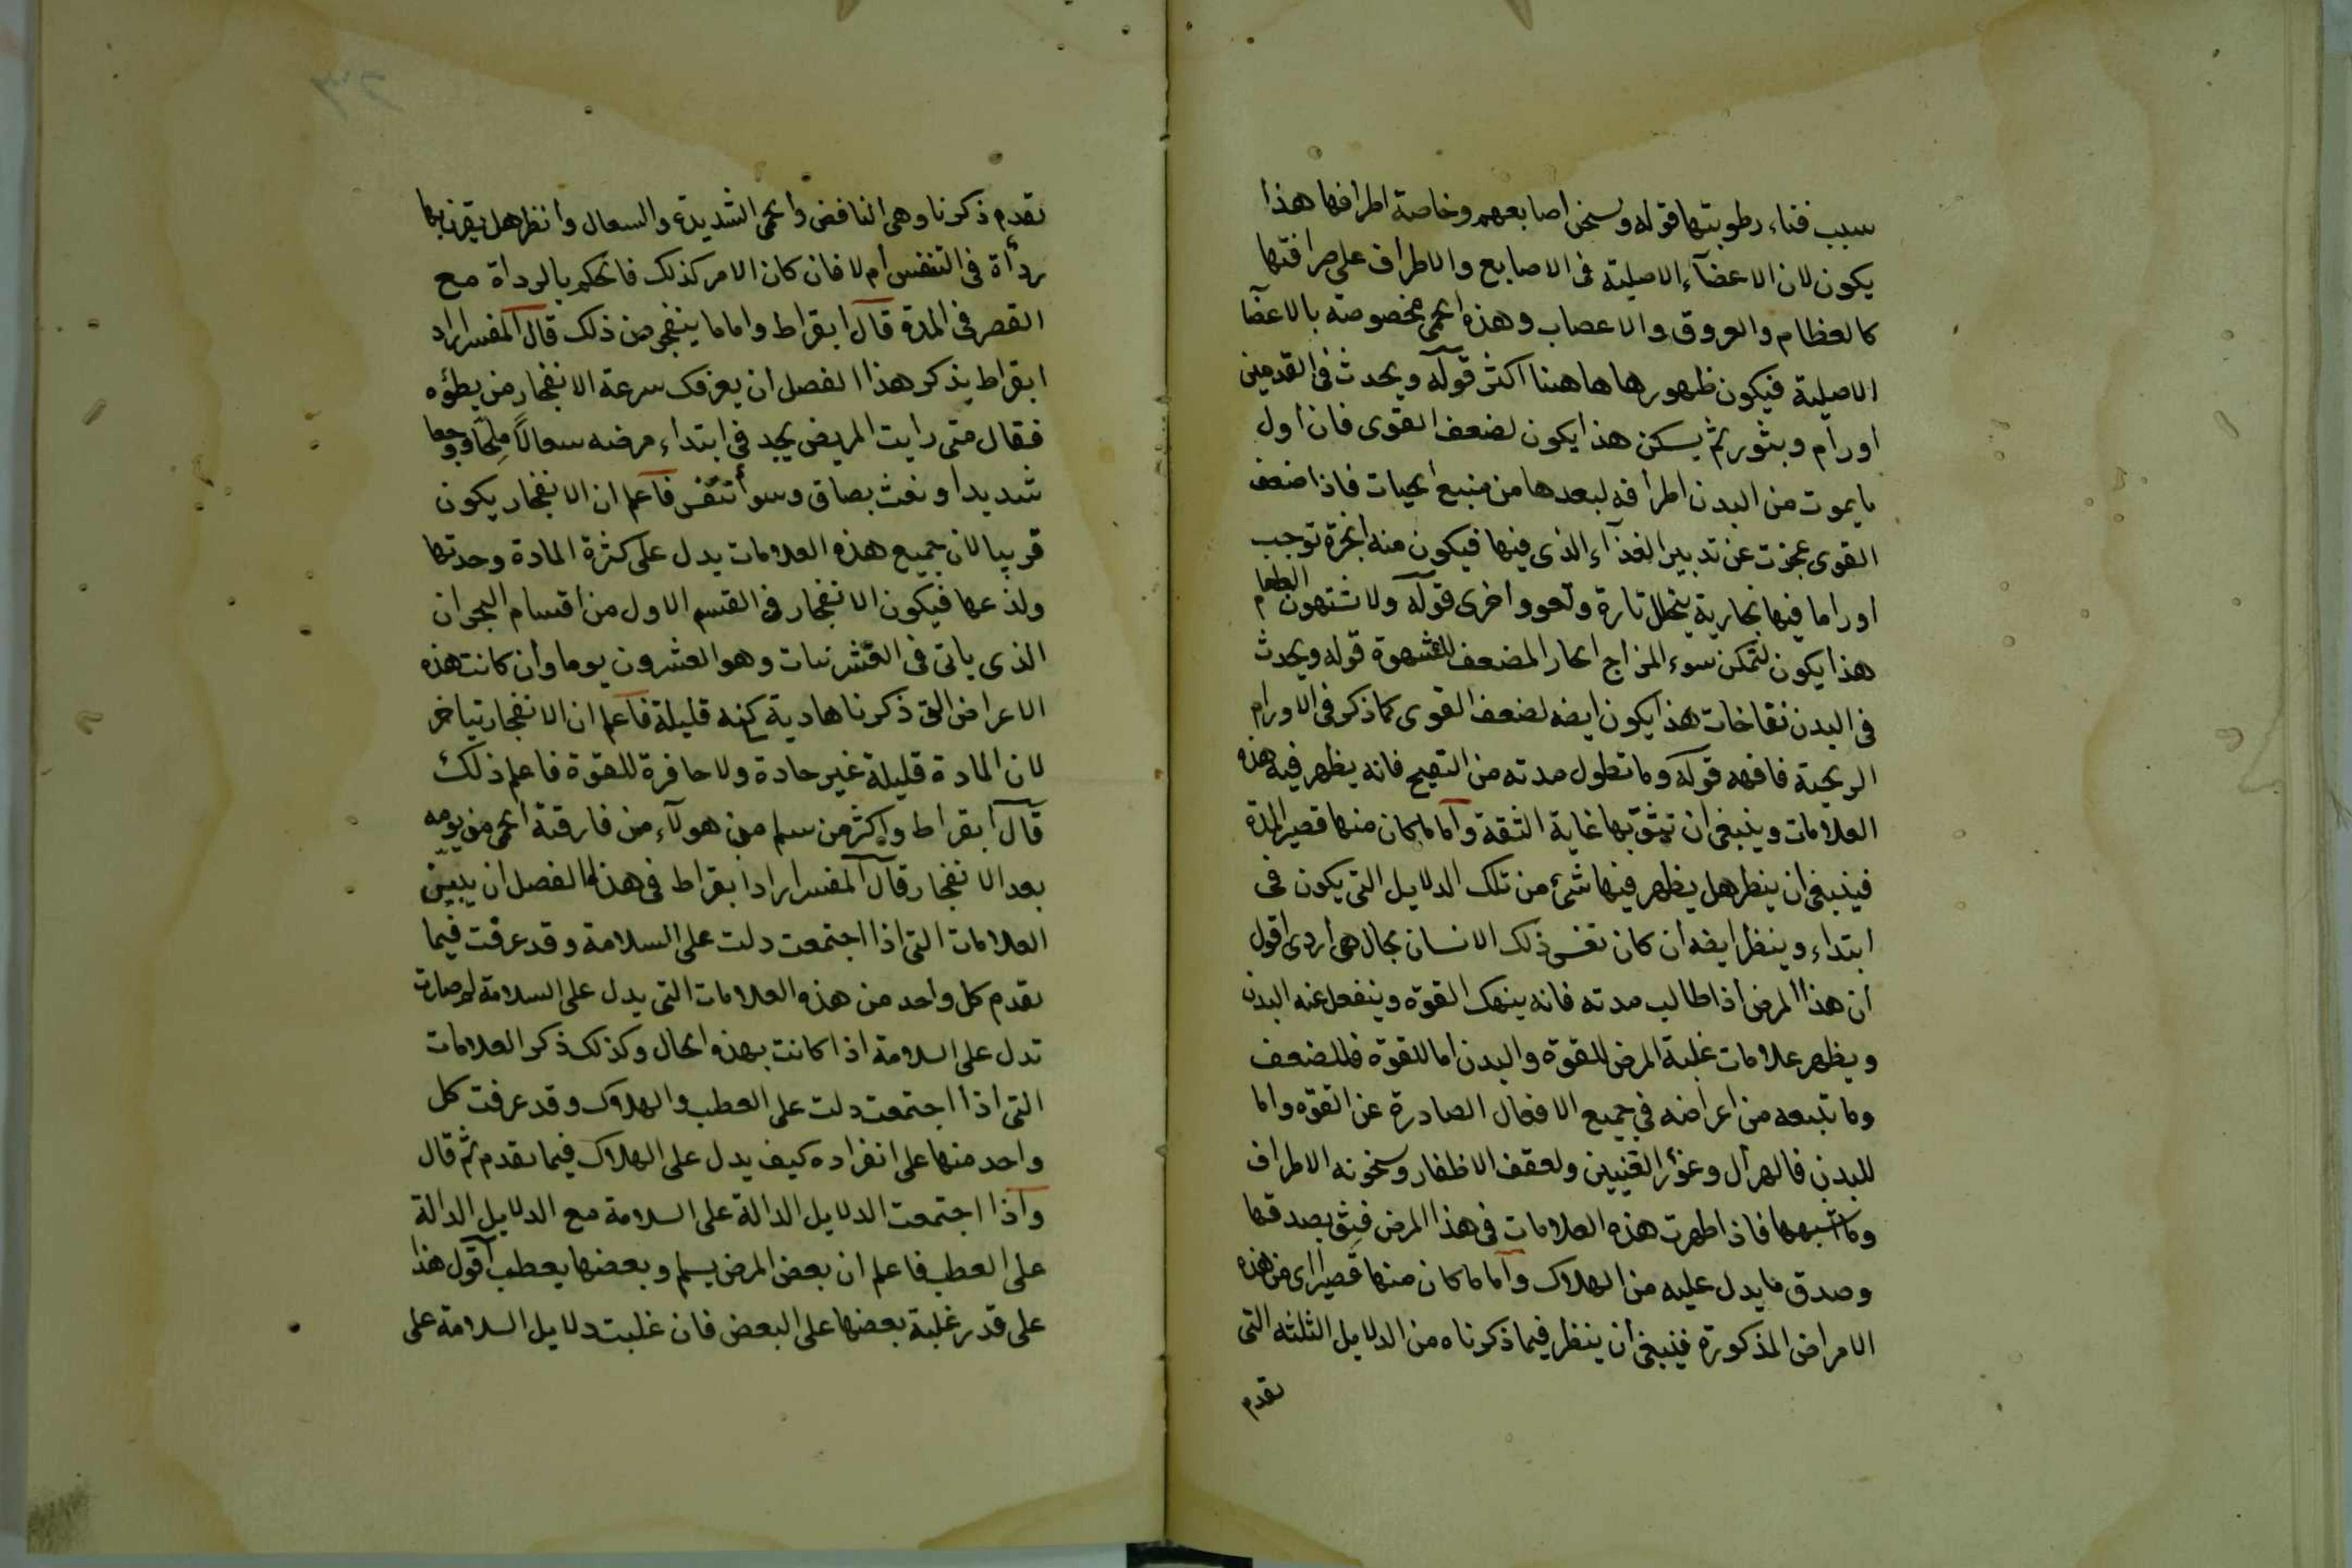 سبب فناء رطوبتها قوله وسخن اصابعهم وخاصة اطرافها هذا
يكون لان الاعضآء الاصلية فى الاصابع والاطراف على صرافتها
كالعظام والعروق والاعصاب وهذه الحمى مخصوصة بالاعضآ
الاصلية فيكون ظهورها هاهنا اكثر قوله ويحدث فى القدمين
اورام وبثور ثم يسكن هذا يكون لضعف القوى فان اول
ما يموت من البدن اطرافه لبعدها من منبع الحيات فاذا ضعف
القوى عجزت عن تدبير الغذآء الذى فيها فيكون منه ابخرة توجب
اوراما فيها بخارية يتحلل تارة وتعود اخرى قوله ولا تشتهون الطعام
هذا يكون لتمكن سوء المزاج الحار المضعف للشهوة قوله ويحدث
فى البدن نقاخات هذا يكون ايضه لضعف القوى كما ذكر فى الاورام
الريحية فافهه قوله وما تطول مدته من التقيح فانه يظهر فيه هذه
العلامات وينبغى ان تيثق بها غاية الثقة وآما ما كان منها قصير المدة
فينبغى ان ينظر هل يظهر فيها شئ من تلك الدلايل التى يكون فى
ابتداء وينظر ايضه ان كان نفس ذلك الانسان بحال هى اردى اقول
ان هذا المرض اذا طالب مدته فانه ينهك القوة وينفعل عنه البدن
ويظهر علامات غلبة المرض للقوة والبدن اما للقوة فللضعف
وما تتبعه من اعراضه فى جميع الافعال الصادرة عن القوة واما
للبدن فالهزال وغؤر العينين ولعقف الاظفار وسخونه الاطراف
وما اشبهها فاذا ظهرت هذه العلامات فى هذا المرض فيثق بصدقها
وصدق ما يدل عليه من الهلاك وآما ما كان منها قصيرا اى من هذه
الامراض المذكورة فينبغى ان ينظر فيما ذكرناه من الدلايل الثلثه التى
تقدم
تقدم ذكرنا وهى النافض والحمى الشديدة والسعال وانظر هل يقترن بها
ردأة فى التنفس ام لا فان كان الامر كذلك فاحكم بالرداة مع
القصر فى المدة قال ابقراط واما ما ينفجر من ذلك قال المفسر اراد
ابقراط بذكر هذا الفصل ان يعرفك سرعة الانفجار من بطؤه
فقال متى رايت المريض يجد فى ابتداء مرضه سعالاً ملحّا ووجعا
شديدا ونفث بصاق وسوأ تنفس فآعلم ان الانفجار يكون
قريبا لان جميع هذه العلامات يدل على كثرة المادة وحدتها
ولذعها فيكون الانفجار فى القسم الاول من اقسام البحران
الذى ياتى فى العشرنيات وهو العشرون يوما وأن كانت هذه
الاعراض التى ذكرنا هادية لكنه قليلة فآعلم ان الانفجار يتاخر
لان المادة قليلة غير حادة ولا حافرة للقوة فاعلم ذلك
قال ابقراط واكثر من سلم من هولآء من فارقته الحمى من يومه
بعد الانفجار قال المفسر اراد ابقراط فى هذا الفصل ان يبين
العلامات التى اذا اجتمعت دلت على السلامة وقد عرفت فيما
تقدم كل واحد من هذه العلامات التى يدل على السلامة لم صارت
تدل على السلامة اذا كانت بهذه الحال وكذلك ذكر العلامات
التى اذا اجتمعت دلت على العطب والهلاك وقد عرفت كل
واحد منها على انفراده كيف يدل على الهلاك فيما تقدم ثم قال
وآذا اجتمعت الدلايل الدالة على السلامة مع الدلايل الدالة
على العطب فاعلم ان بعض المرض يسلم وبعضها يعطب اقول هذا
على قدر غلبة بعضها على البعض فان غلبت دلايل السلامة على